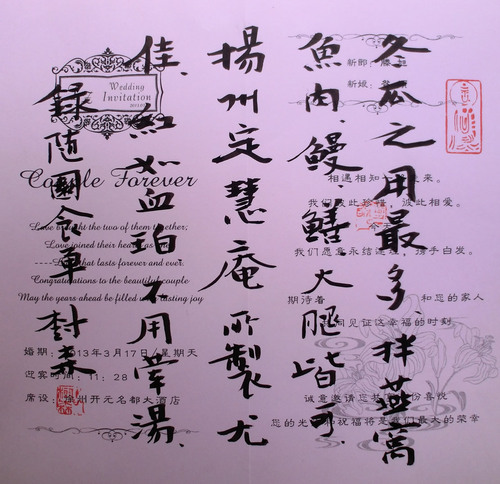 冬瓜之用最多.拌燕窩
魚肉.鰻.鱔.火腿皆可.
揚州定慧庵所製尤
佳.紅如血珀.不用葷湯.
錄隨園食单
Wedding
Invitation
Couple Forever
Love brought the two of them together;
Love joined their hearts as one
----Love that lasts forever and ever.
Congratulations to the beautiful couple
May the years ahead be filled with lasting joy
婚期：2013年3月17日/星期天
迎宾时间：11：28
席设：扬州开元名都大酒店
新郎：
新娘：
相遇相知七年来。
我们彼此珍惜，彼此相爱。
今天
我们愿意永结连理，携手白发。
期待着 和您的家人
共同见证这幸福的时刻
诚意邀请您共享这份喜悦
您的光临和祝福将是我们最大的荣幸